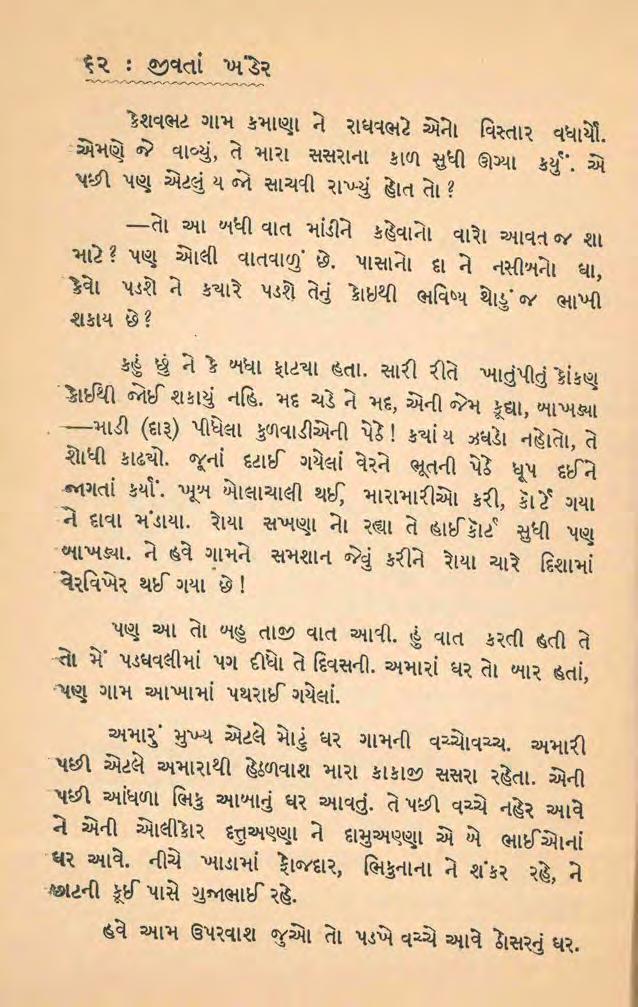 ૬૨ : જીવતાં ખંડેર
કેશવભટ ગામ કમાણા ને રાઘવભટે એનો વિસ્તાર વધાર્યો.
એમણે જે વાવ્યું, તે મારા સસરાના કાળ સુધી ઊગ્યા કર્યું. એ
પછી પણ એટલું ય જો સાચવી રાખ્યું હોત તો ?
—તો આ બધી વાત માંડીને કહેવાનો વારો આવત જ શા
માટે ? પણ ઓલી વાતવાળું છે. પાસાનો દા ને નસીબનો ઘા,
કેવો પડશે ને ક્યારે પડશે તેનું કોઇથી ભવિષ્ય થોડું જ ભાખી
શકાય છે ?
કહું છું ને કે બધા ફાટયા હતા. સારી રીતે ખાતુંપીતું કોંકણ
કોઈથી જોઈ શકાયું નહિ. મદ ચડે ને મદ, એની જેમ કૂદ્યા, બાખડ્યા
—માડી (દારૂ) પીધેલા કુળવાડીઓની પેઠે ! ક્યાં ય ઝઘડો નહોતો, તે
શોધી કાઢયો. જૂનાં દટાઈ ગયેલાં વેરને ભૂતની પેઠે ધૂપ દઈને
જાગતાં કર્યાં. ખૂબ બોલાચાલી થઈ, મારામારીઓ કરી, કોર્ટે ગયા
ને દાવા મંડાયા. રોયા સખણા નો રહ્યા તે હાઈકોર્ટ સુધી પણ
બાખડ્યા. ને હવે ગામને સમશાન જેવું કરીને રોયા ચારે દિશામાં
વેરવિખેર થઈ ગયા છે !
પણ આ તો બહુ તાજી વાત આવી. હું વાત કરતી હતી તે
તો મેં પડઘવલીમાં પગ દીધો તે દિવસની. અમારાં ઘર તો બાર હતાં,
પણ ગામ આખામાં પથરાઈ ગયેલાં.
અમારું મુખ્ય એટલે મોટું ઘર ગામની વચ્ચોવચ્ચ. અમારી
પછી એટલે અમારાથી હેઠળવાશ મારા કાકાજી સસરા રહેતા. એની
પછી આંધળા ભિકુ આબાનું ઘર આવતું. તે પછી વચ્ચે નહેર આવે
ને એની ઓલીકોર દત્તુઅણ્ણા ને દામુઅણ્ણા એ બે ભાઈઓનાં
ઘર આવે. નીચે ખાડામાં ફોજદાર, ભિકુનાના ને શંકર રહે, ને
ભાટની કૂઈ પાસે ગુજાભાઈ રહે.
હવે આમ ઉપરવાશ જુઓ તો પડખે વચ્ચે આવે ઠોસરનું ઘર.